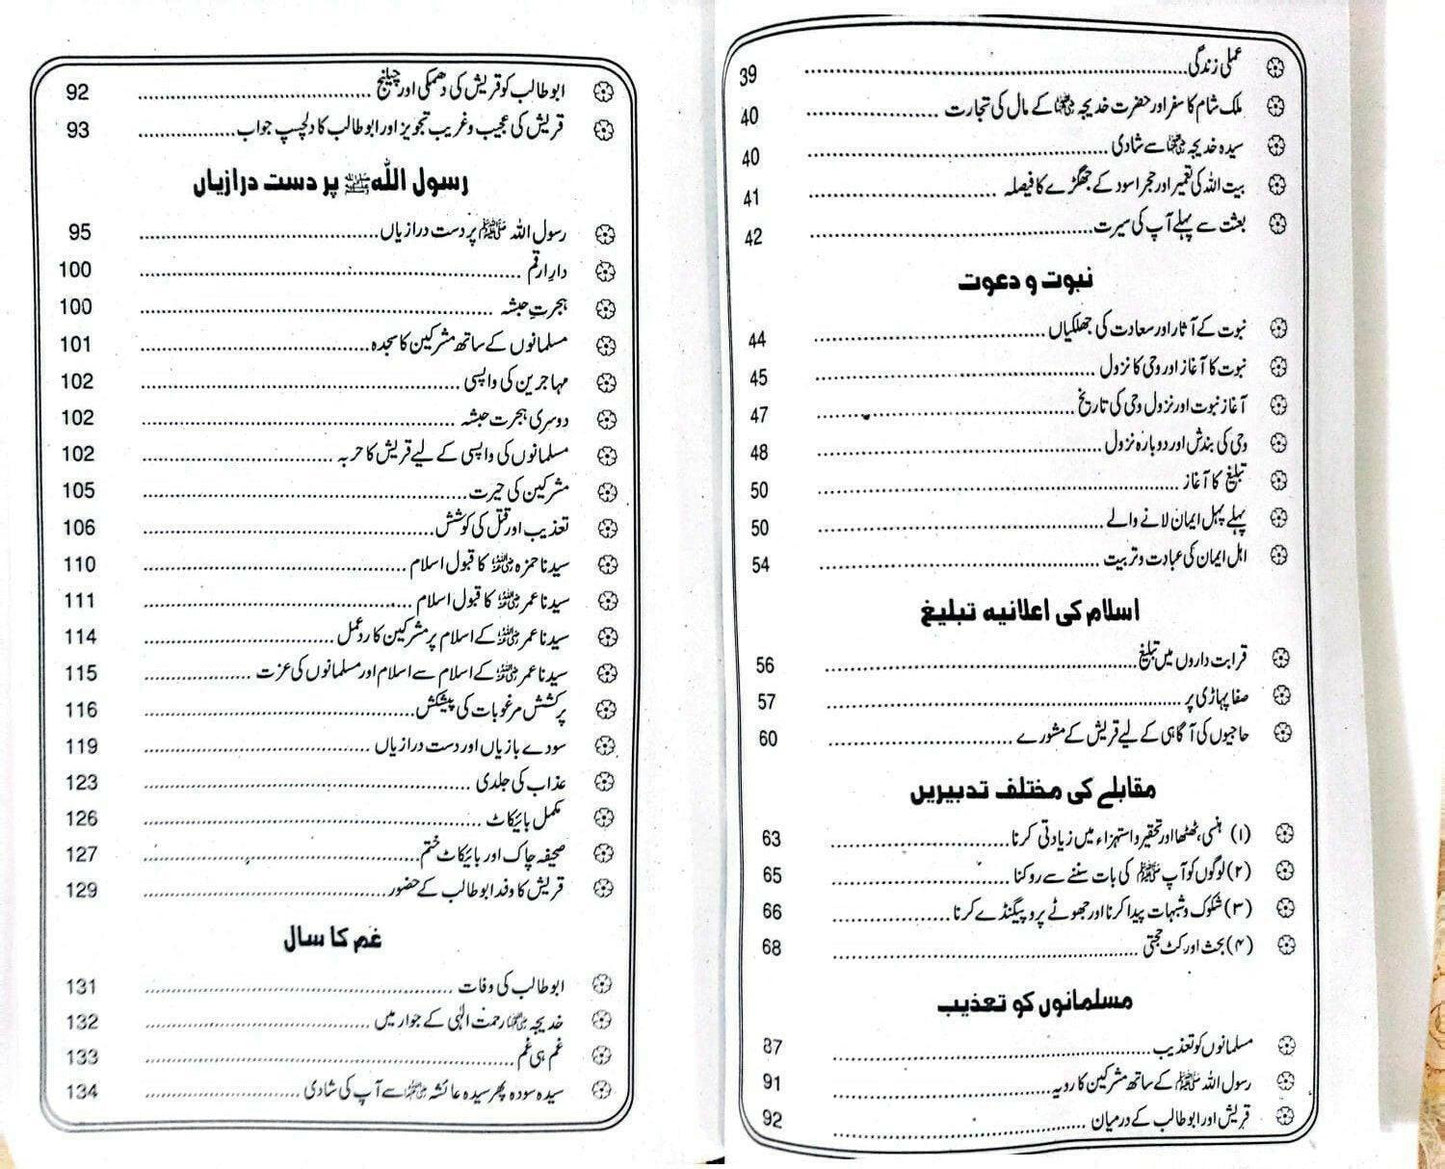 عملی زندگی ........ 39
ملک شام کا سفر اور حضرت خدیجہ رضی اللہ عنہا کے مال کی تجارت ........ 40
سیدہ خدیجہ رضی اللہ عنہا سے شادی ........ 40
بیت اللہ کی تعمیر اور حجر اسود کے جھگڑے کا فیصلہ ........ 41
بعثت سے پہلے آپ کی سیرت ........ 42
نبوت و دعوت
نبوت کے آثار اور سعادت کی جھلکیاں ........ 44
نبوت کا آغاز اور وحی کا نزول ........ 45
آغاز نبوت اور نزول وحی کی تاریخ ........ 47
وحی کی بندش اور دوبارہ نزول ........ 48
تبلیغ کا آغاز ........ 50
پہلے پہل ایمان لانے والے ........ 50
اہل ایمان کی عبادت و تربیت ........ 54
اسلام کی اعلانیہ تبلیغ
قرابت داروں میں تبلیغ ........ 56
صفا پہاڑی پر ........ 57
حاجیوں کی آگاہی کے لیے قریش کے مشورے ........ 60
مقابلے کی مختلف تدبیریں
(۱) ہنسی، ٹھٹھا اور تحقیر و استہزاء میں زیادتی کرنا ........ 63
(۲) لوگوں کو آپ ﷺ کی بات سننے سے روکنا ........ 65
(۳) شکوک و شبہات پیدا کرنا اور جھوٹے پروپیگنڈے کرنا ........ 66
(۴) بحث اور کٹ حجتی ........ 68
مسلمانوں کو تعذیب
مسلمانوں کو تعذیب ........ 87
رسول اللہ ﷺ کے ساتھ مشرکین کا رویہ ........ 91
قریش اور ابوطالب کے درمیان ........ 92
ابوطالب کو قریش کی دھمکی اور چیلنج ........ 92
قریش کی عجیب و غریب تجویز اور ابوطالب کا دلچسپ جواب ........ 93
رسول اللہ ﷺ پر دست درازیاں
رسول اللہ ﷺ پر دست درازیاں ........ 95
دارِ ارقم ........ 100
ہجرتِ حبشہ ........ 100
مسلمانوں کے ساتھ مشرکین کا سجدہ ........ 101
مہاجرین کی واپسی ........ 102
دوسری ہجرت حبشہ ........ 102
مسلمانوں کی واپسی کے لیے قریش کا حربہ ........ 102
مشرکین کی حیرت ........ 105
تعذیب اور قتل کی کوشش ........ 106
سیدنا حمزہ رضی اللہ عنہ کا قبول اسلام ........ 110
سیدنا عمر رضی اللہ عنہ کا قبول اسلام ........ 111
سیدنا عمر رضی اللہ عنہ کے اسلام پر مشرکین کا ردعمل ........ 114
سیدنا عمر رضی اللہ عنہ کے اسلام سے اسلام اور مسلمانوں کی عزت ........ 115
پرکشش مرغوبات کی پیشکش ........ 116
سودے بازیاں اور دست درازیاں ........ 119
عذاب کی جلدی ........ 123
مکمل بائیکاٹ ........ 126
صحیفہ چاک اور بائیکاٹ ختم ........ 127
قریش کا وفد ابوطالب کے حضور ........ 129
غم کا سال
ابوطالب کی وفات ........ 131
خدیجہ رضی اللہ عنہا رحمت الٰہی کے جوار میں ........ 132
غم ہی غم ........ 133
سیدہ سودہ پھر سیدہ عائشہ رضی اللہ عنہما سے آپ کی شادی ........ 134